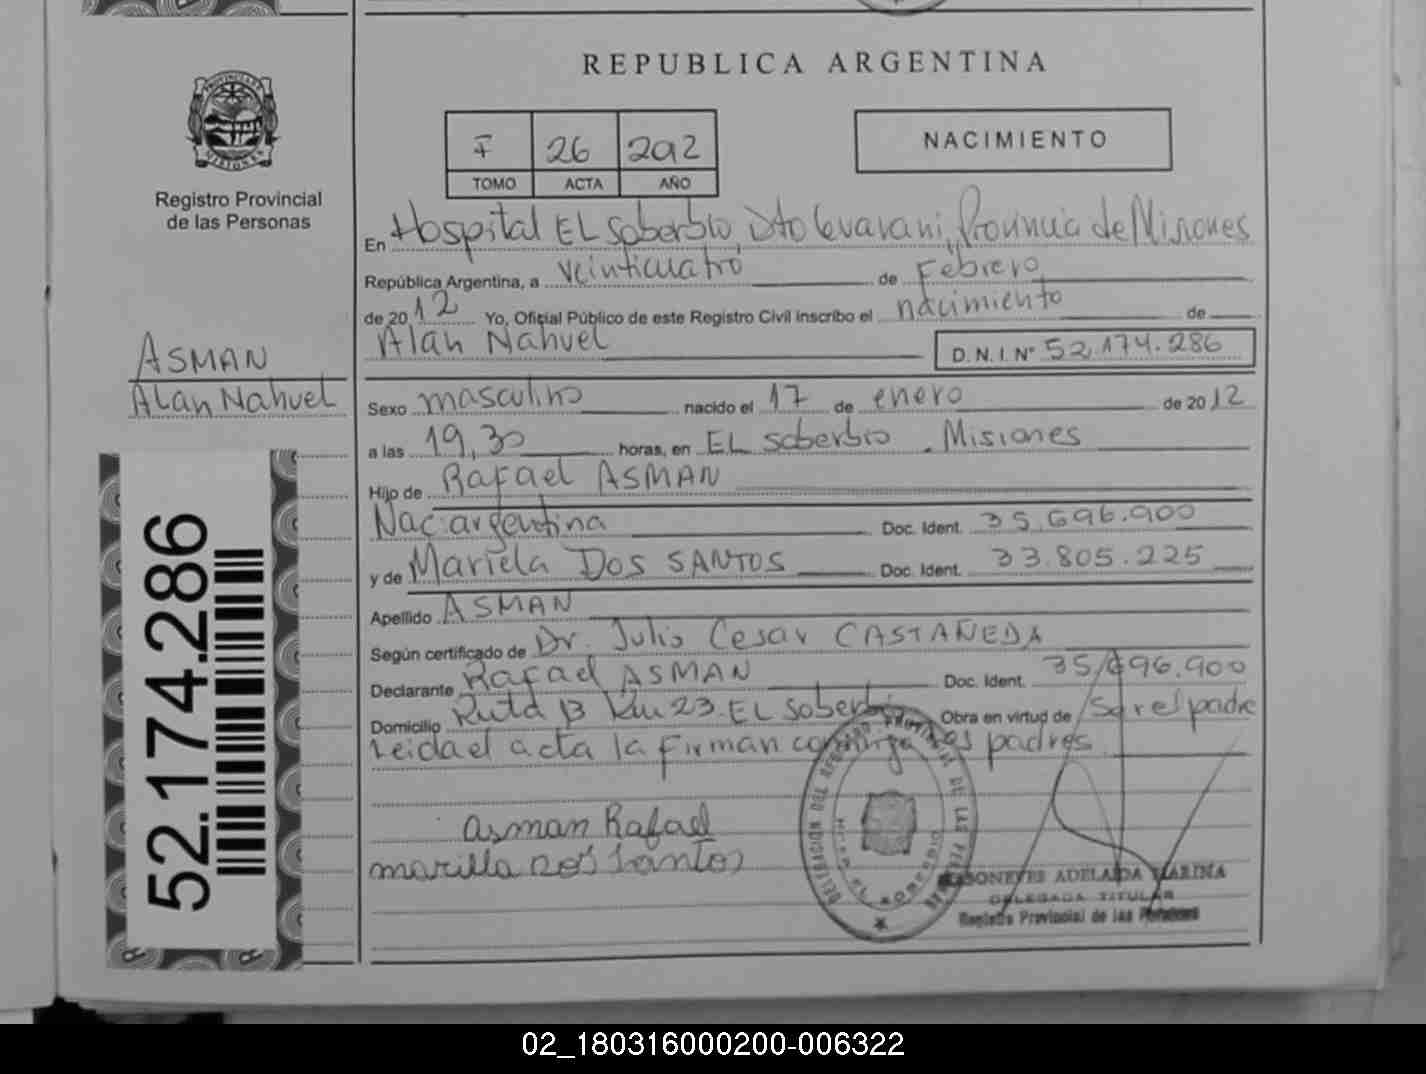 REPUBLICA ARGENTINA
PROVINCIA DE MISIONES
Registro Provincial
de las Personas
F 26 2012
TOMO ACTA AÑO
NACIMIENTO
En Hospital EL Soberbio, Dto Guarani, Provincia de Misiones
República Argentina, a veinticuatro de Febrero
de 2012 Yo, Oficial Público de este Registro Civil inscribo el nacimiento de
Alan Nahuel
D.N.I. Nº 52.174.286
ASMAN
Alan Nahuel
Sexo masculino nacido el 17 de enero de 2012
a las 19,30 horas, en EL Soberbio. Misiones
Hijo de Rafael ASMAN
Nac: argentina Doc. Ident. 35.696.900
y de Mariela DOS SANTOS Doc. Ident. 33.805.225
Apellido ASMAN
Según certificado de Dr. Julio Cesar CASTAÑEDA
Declarante Rafael ASMAN Doc. Ident. 35.696.900
Domicilio Ruta 13 Km 23. EL Soberbio Obra en virtud de Ser el padre
Leida el acta la firman conmigo los padres
52.174.286
asman Rafael
mariela dos santos
DELEGACION DEL REGISTRO PROVINCIAL DE LAS PERSONAS
EL SOBERBIO
ADELAIDA MARINA
DELEGADA TITULAR
Registro Provincial de las Personas
02_180316000200-006322